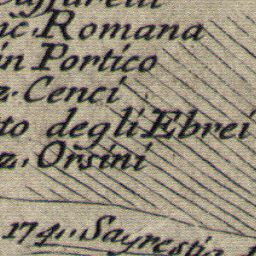 ic. Romana
in Portico
z. Cenci
to degli Ebrei
z. Orsini
174. Sagrestia